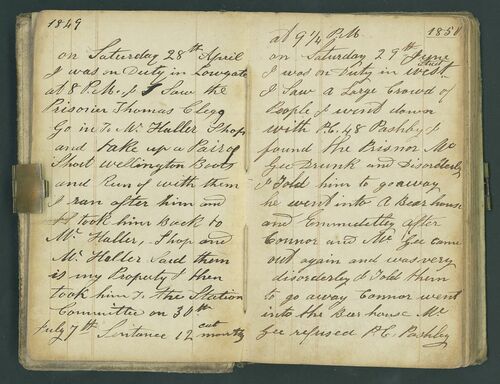 1849
on Saturday 28th April
I was on Duty in Lowgate
at 8 P.M. & I Saw the
Prisorier Thomas Clegg
Go in To Mr Haller Shop
and take up a Pair of
Short wellington Boots
and Run of with them
I ran after him and
I took him Back to
Mr Haller, Shop and
Mr Haller Said them
is my Property I then
took him To the Station
Committee on 30th
July 7th Sintance 12 cal months
at 9 1/4 P.M. 1850
on Saturday 29th June
I was on Duty in west Street
I Saw a Large Crowd of
People I went down
with P.C. 48 Pashby I
found the Prisnor Mc
Gee Drunk and Disorderly
I Told him to go away
he went into A Bear house
and Emmeditley after
Connor and Mc Gee came
out again and was very
disorderley I Told them
to go away Connor went
into the Beer house Mc
Gee refused P.C. Pashby